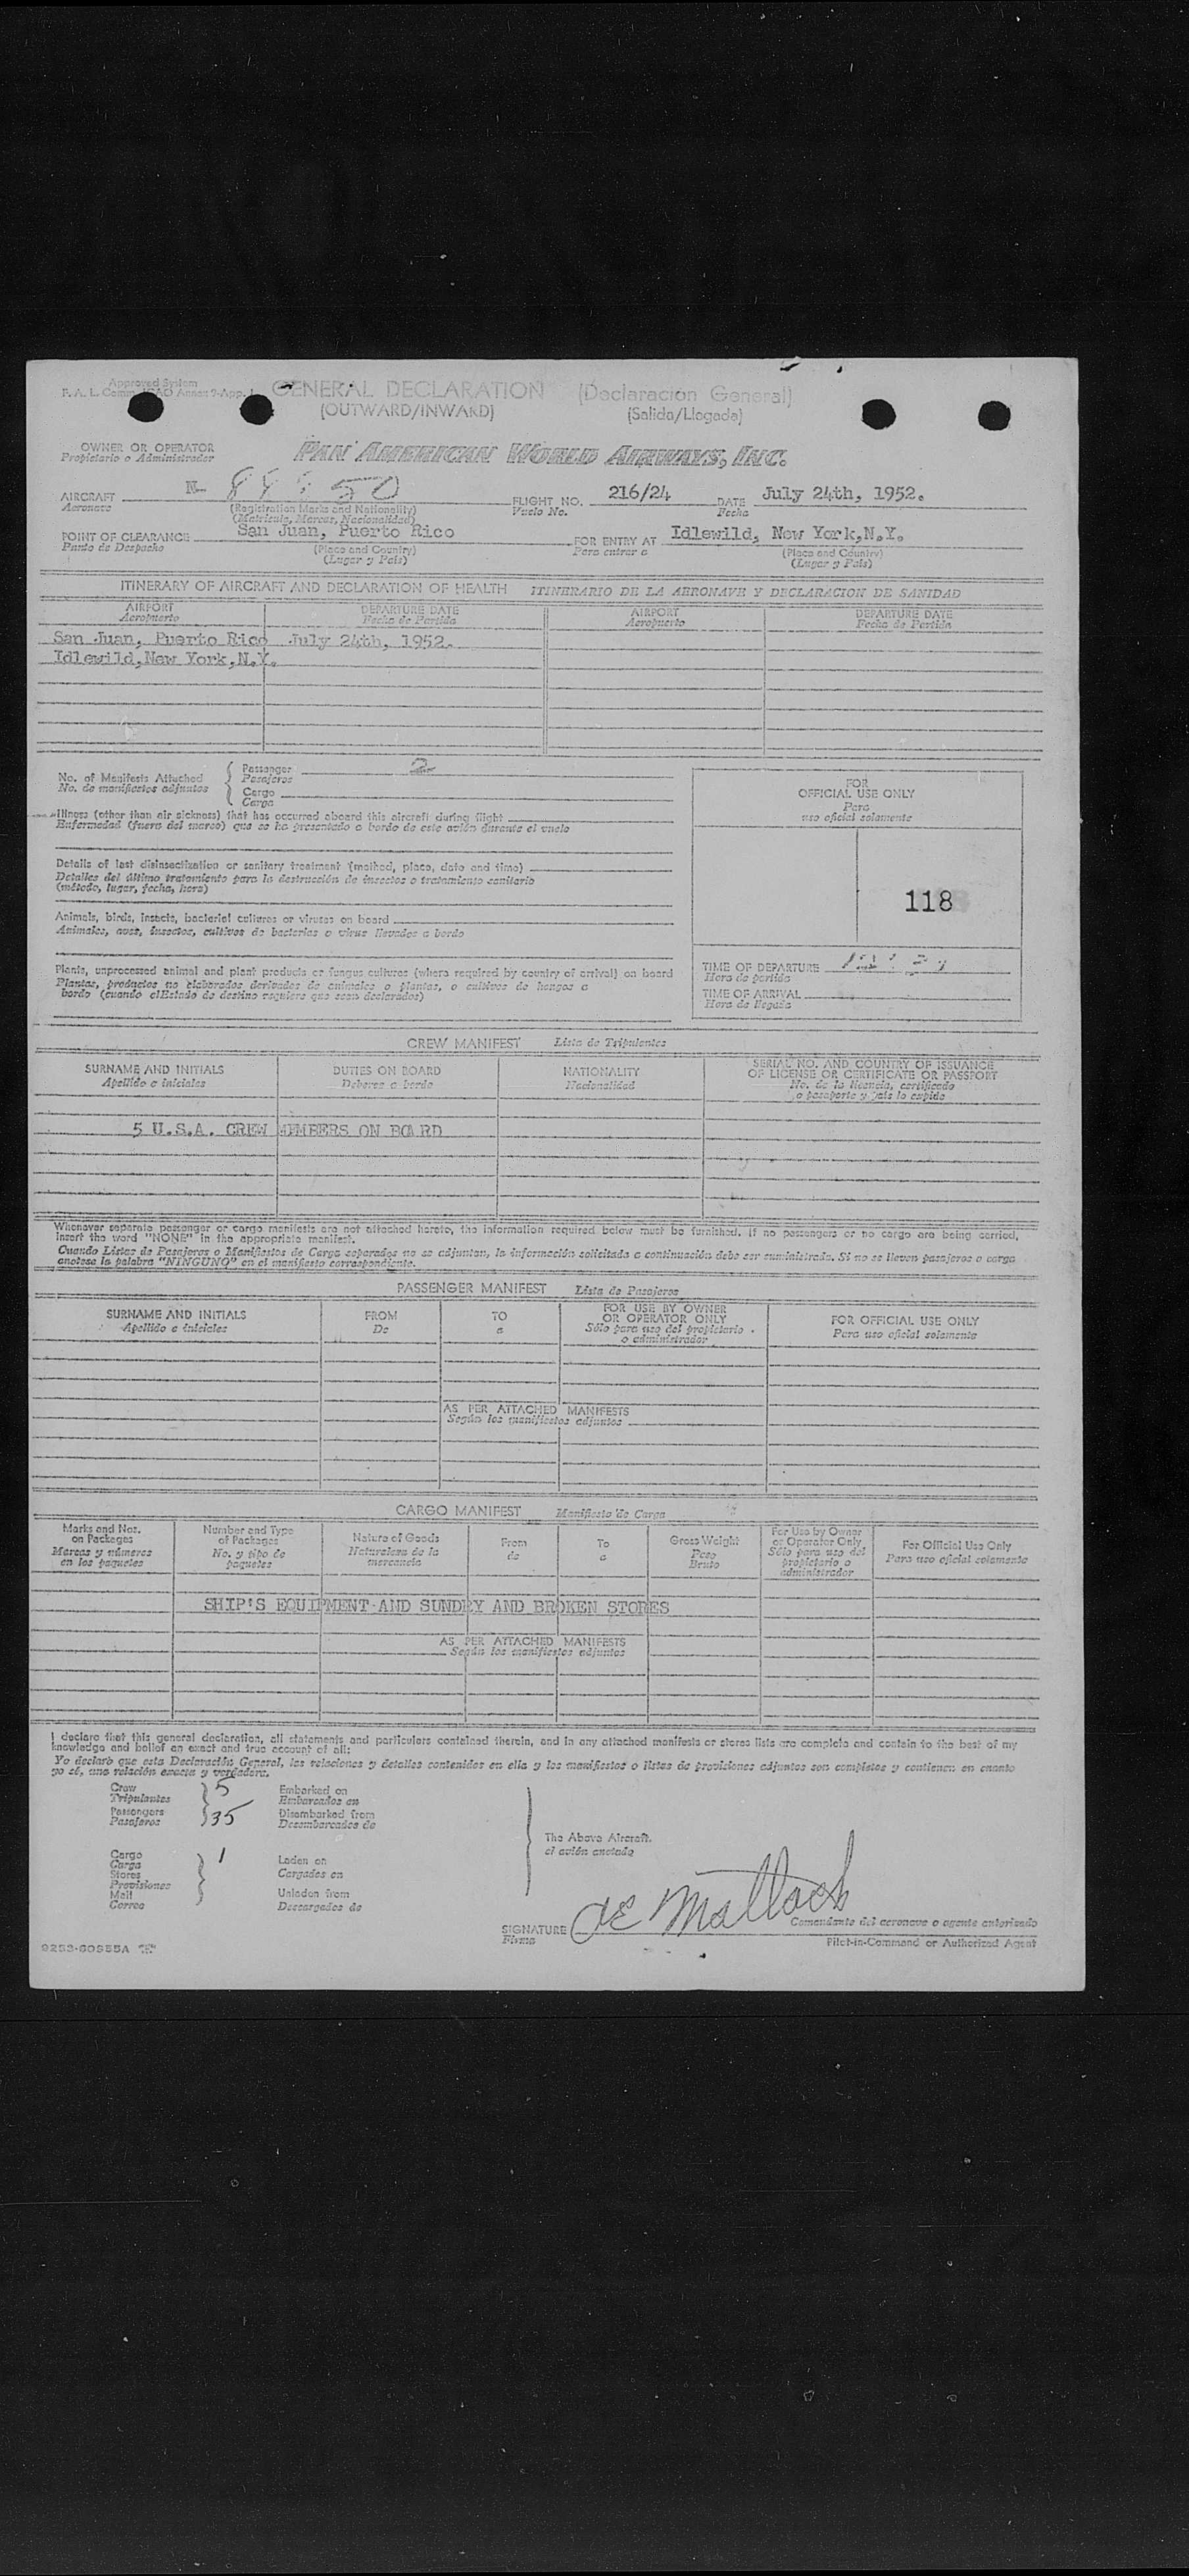 Approved System
F. A. L. Comm. ICAO Annex 9-App. 1
GENERAL DECLARATION (Declaración General)
(OUTWARD/INWARD) (Salida/Llegada)
OWNER OR OPERATOR
Propietario o Administrador
PAN AMERICAN WORLD AIRWAYS, INC.
AIRCRAFT N- FLIGHT NO. 216/24 DATE July 24th, 1952.
Aeronave (Registration Marks and Nationality) Vuelo No. Fecha
(Matrícula, Marcas, Nacionalidad)
POINT OF CLEARANCE San Juan, Puerto Rico FOR ENTRY AT Idlewild, New York,N.Y.
Punto de Despacho (Place and Country) Para entrar a (Place and Country)
(Lugar y País) (Lugar y País)
ITINERARY OF AIRCRAFT AND DECLARATION OF HEALTH ITINERARIO DE LA AERONAVE Y DECLARACION DE SANIDAD
AIRPORT DEPARTURE DATE AIRPORT DEPARTURE DATE
Aeropuerto Fecha de Partida Aeropuerto Fecha de Partida
San Juan, Puerto Rico July 24th, 1952.
Idlewild,New York,N.Y.
No. of Manifests Attached
No. de manifiestos adjuntos
Passenger 2
Pasajeros
Cargo
Carga
Illness (other than air sickness) that has occurred aboard this aircraft during flight
Enfermedad (fuera del mareo) que se ha presentado a bordo de este avión durante el vuelo
Details of last disinsectization or sanitary treatment (method, place, date and time)
Detalles del último tratamiento para la destrucción de insectos o tratamiento sanitario
(método, lugar, fecha, hora)
Animals, birds, insects, bacterial cultures or viruses on board
Animales, aves, insectos, cultivos de bacterias o virus llevados a bordo
Plants, unprocessed animal and plant products or fungus cultures (where required by country of arrival) on board
Plantas, productos no elaborados derivados de animales o plantas, o cultivos de hongos a
bordo (cuando el Estado de destino requiere que sean declarados)
FOR
OFFICIAL USE ONLY
Para
uso oficial solamente
118
TIME OF DEPARTURE
Hora de partida
TIME OF ARRIVAL
Hora de llegada
CREW MANIFEST Lista de Tripulantes
SURNAME AND INITIALS DUTIES ON BOARD NATIONALITY SERIAL NO. AND COUNTRY OF ISSUANCE
OF LICENSE OR CERTIFICATE OR PASSPORT
Apellido e iniciales Deberes a bordo Nacionalidad No. de la licencia, certificado
o pasaporte y país lo expide
5 U.S.A. CREW MEMBERS ON BOARD
Whenever separate passenger or cargo manifests are not attached hereto, the information required below must be furnished. If no passengers or no cargo are being carried,
insert the word "NONE" in the appropriate manifest.
Cuando Listas de Pasajeros o Manifiestos de Carga separados no se adjuntan, la información solicitada a continuación debe ser suministrada. Si no se lleven pasajeros o carga
anótese la palabra "NINGUNO" en el manifiesto correspondiente.
PASSENGER MANIFEST Lista de Pasajeros
SURNAME AND INITIALS FROM TO FOR USE BY OWNER
OR OPERATOR ONLY FOR OFFICIAL USE ONLY
Apellido e iniciales De a Sólo para uso del propietario
o administrador Para uso oficial solamente
AS PER ATTACHED MANIFESTS
Según los manifiestos adjuntos
CARGO MANIFEST Manifiesto de Carga
Marks and Nos.
on Packages
Marcas y números
en los paquetes
Number and Type
of Packages
No. y tipo de
paquetes
Nature of Goods
Naturaleza de la
mercancía
From
de
To
a
Gross Weight
Peso
Bruto
For Use by Owner
or Operator Only
Sólo para uso del
propietario o
administrador
For Official Use Only
Para uso oficial solamente
SHIP'S EQUIPMENT AND SUNDRY AND BROKEN STORES
AS PER ATTACHED MANIFESTS
Según los manifiestos adjuntos
I declare that this general declaration, all statements and particulars contained therein, and in any attached manifests or stores lists are complete and contain to the best of my
knowledge and belief an exact and true account of all:
Yo declaro que esta Declaración General, las relaciones y detalles contenidos en ella y los manifiestos o listas de provisiones adjuntos son completos y contienen en cuanto
yo sé, una relación exacta y verdadera.
Crew 5 Embarked on
Tripulantes Embarcados en
Passengers 35 Disembarked from
Pasajeros Desembarcados de
The Above Aircraft.
el avión anotado
Cargo 1 Laden on
Carga
Stores Cargados en
Provisiones
Mail Unladen from
Correo Descargados de
SIGNATURE
Firma
Comandante del aeronave o agente autorizado
Pilot-in-Command or Authorized Agent
9253-60355A